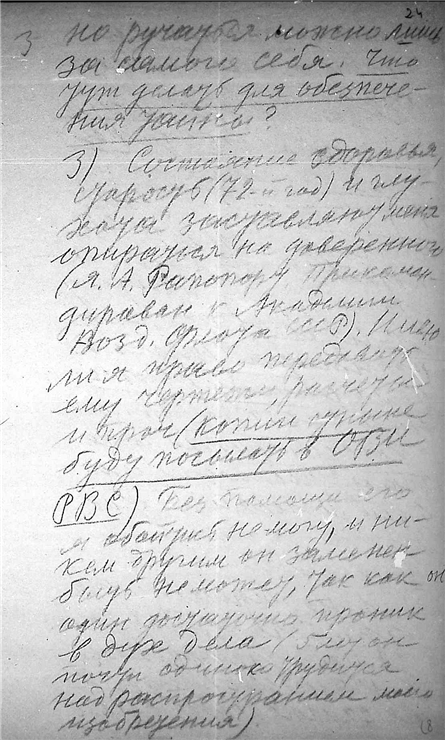 24
3
но ручаться можно лишь
за самого себя. Что
тут делать для обезпече-
ния тайны?
3) Состояние здоровья,
старость (72-й год) и глу-
хота заставляют меня
опираться на доверенного
(Я. А. Рапопорт прикоман-
дирован к Академии
Возд. Флота СССР). Имею
ли я право передавать
ему чертежи, расчеты
и проч (копии
буду посылать в ОВИ
РВС) Без помощи его
я обойтись не могу, и ни-
кем другим он заменен
быть не может, так как он
один достаточно проник
в дух дела (5 лет он
почти одиноко трудится
над распространением моего
изобретения).